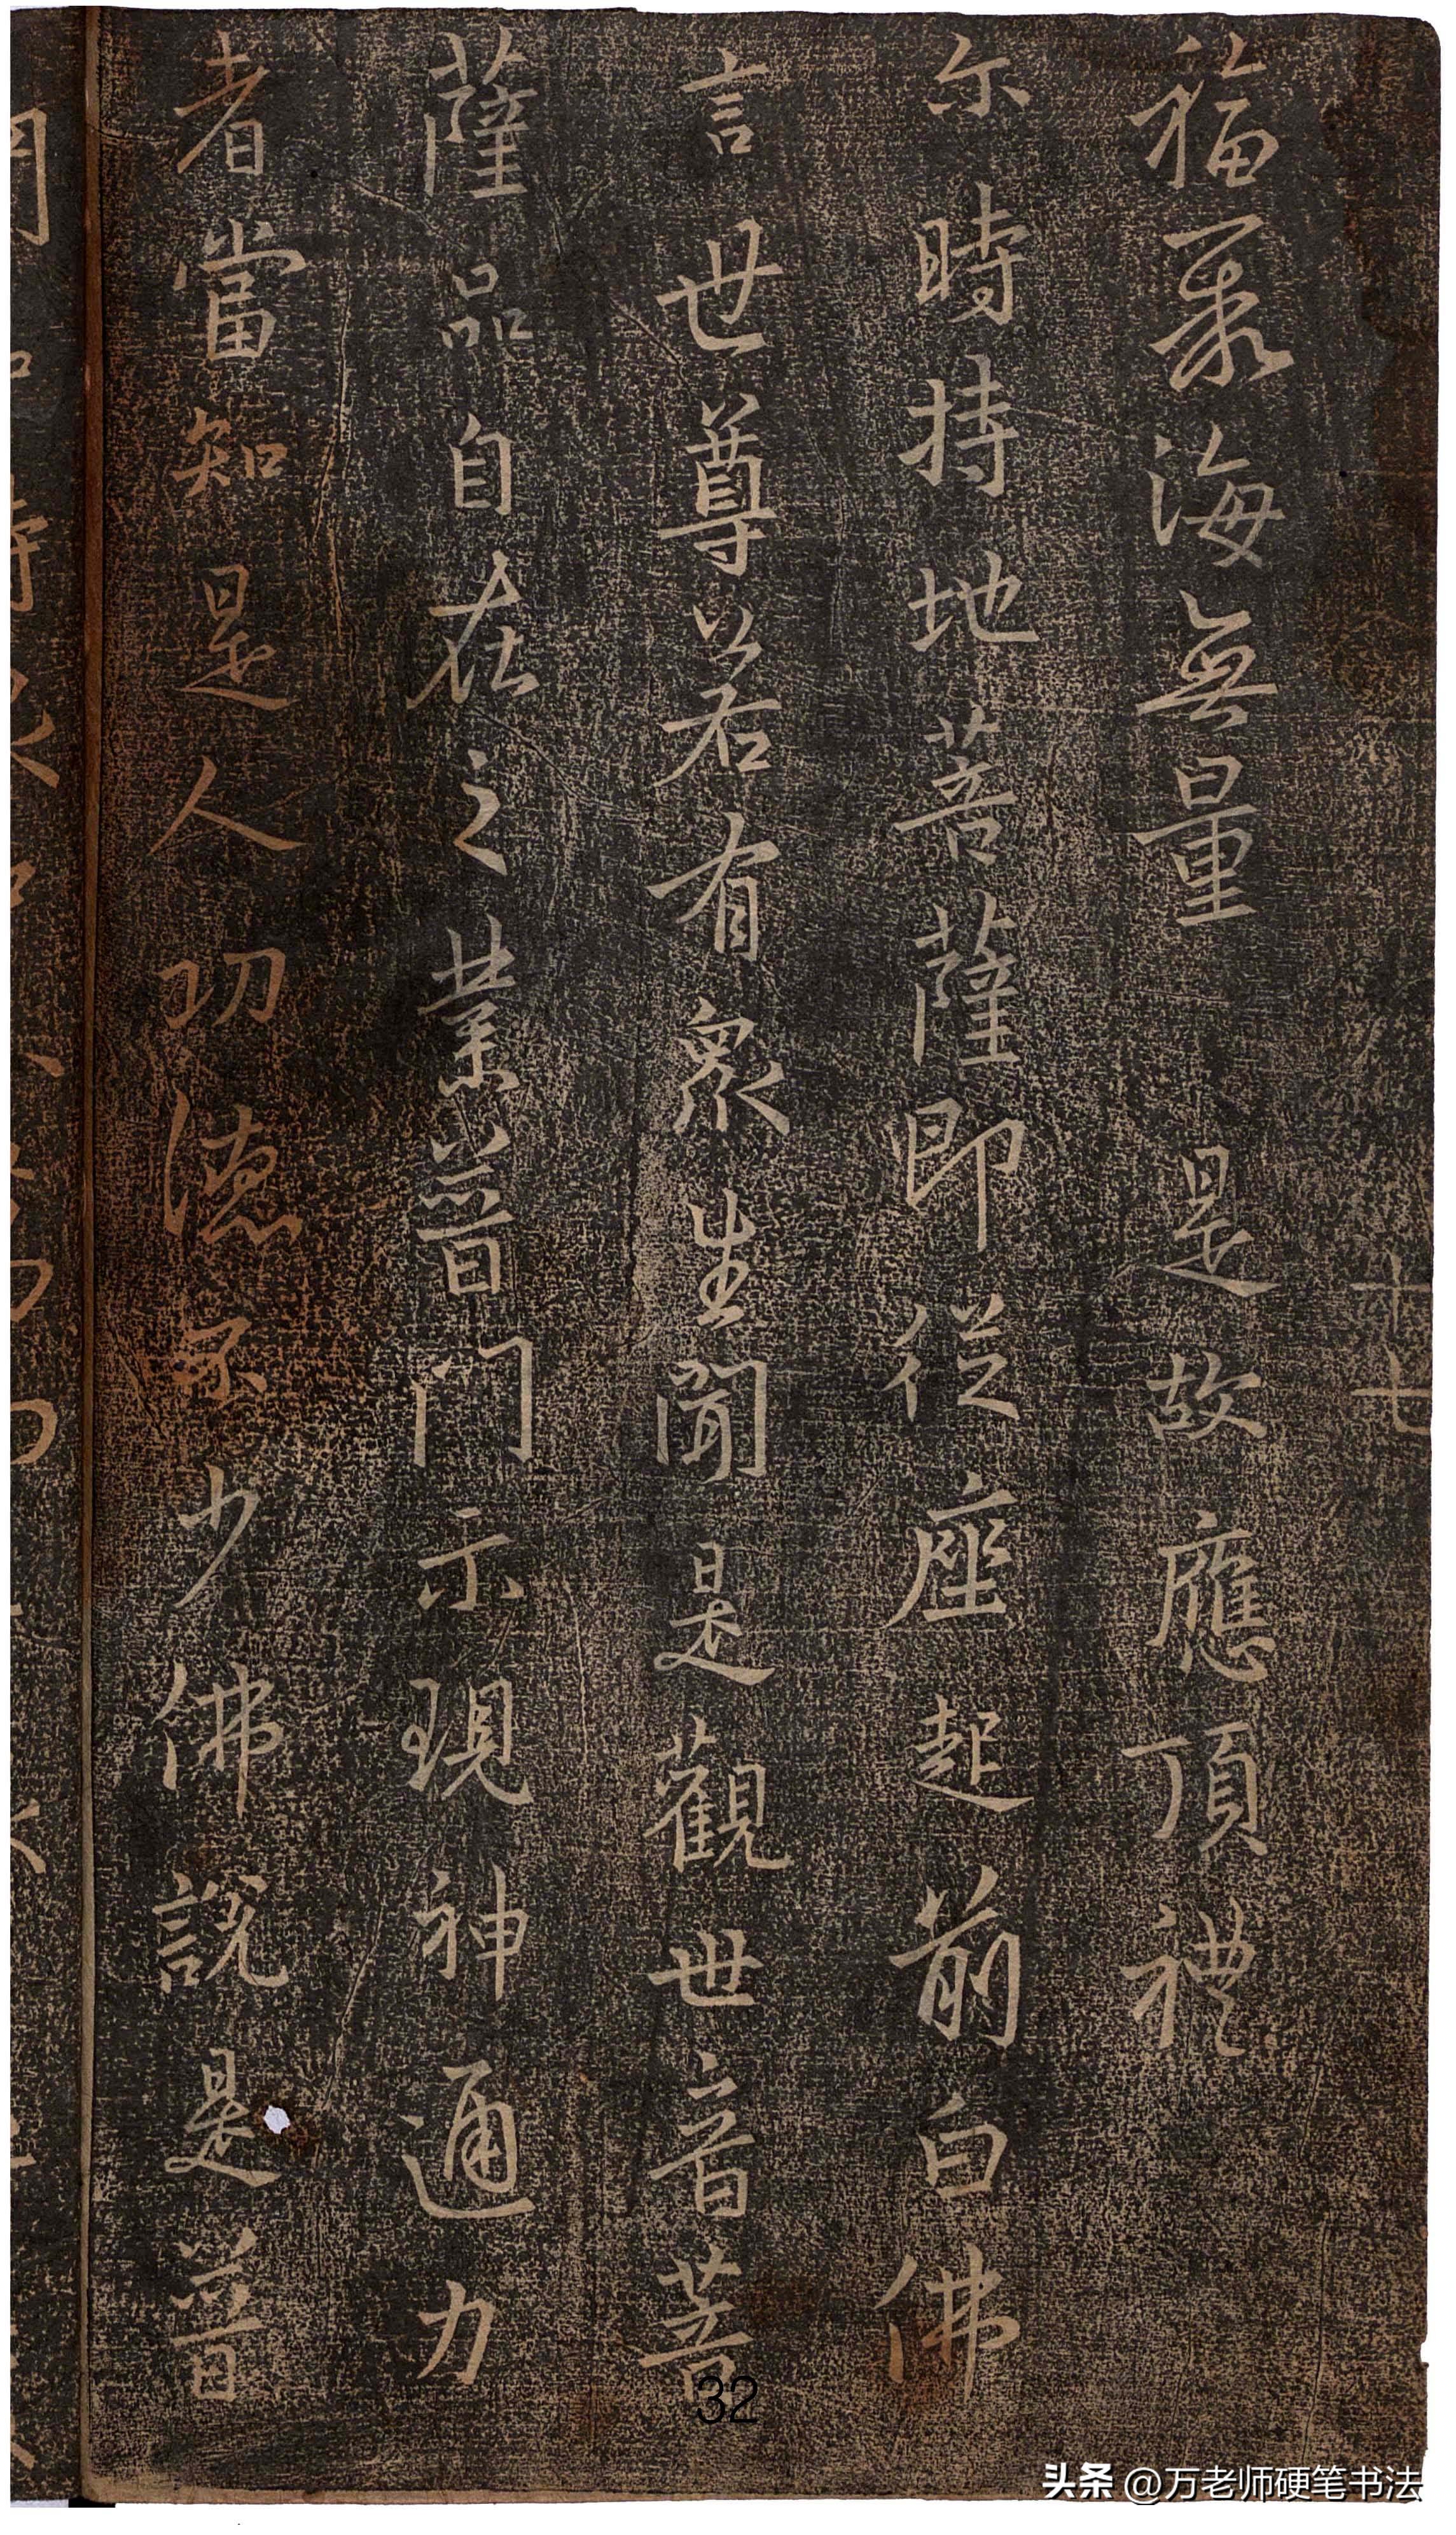 十七
福聚海無量 是故應頂禮
尔時持地菩薩即從座起前白佛
言世尊若有眾生聞是觀世音菩
薩品自在之業普門示現神通力
者當知是人功德不少佛說是普
32
头条 @万老师硬笔书法